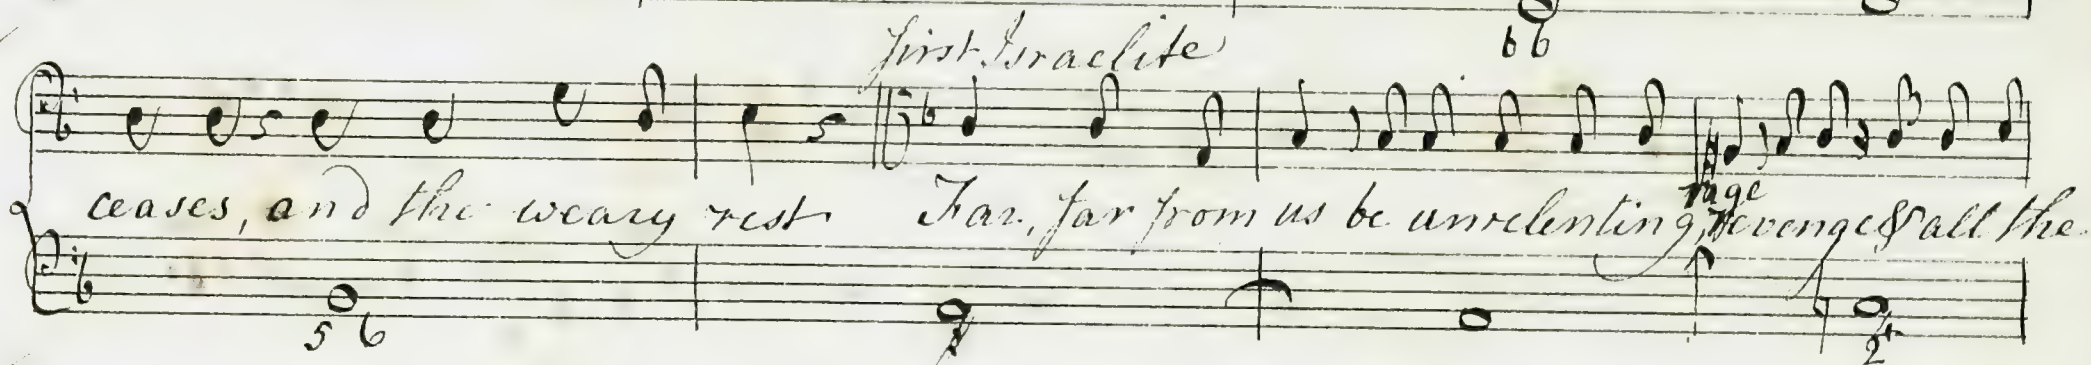 6 6
first Israelite
rage
ceases, and the weary rest Far, far from us be unrelenting, Revenge & all the
5 6
2